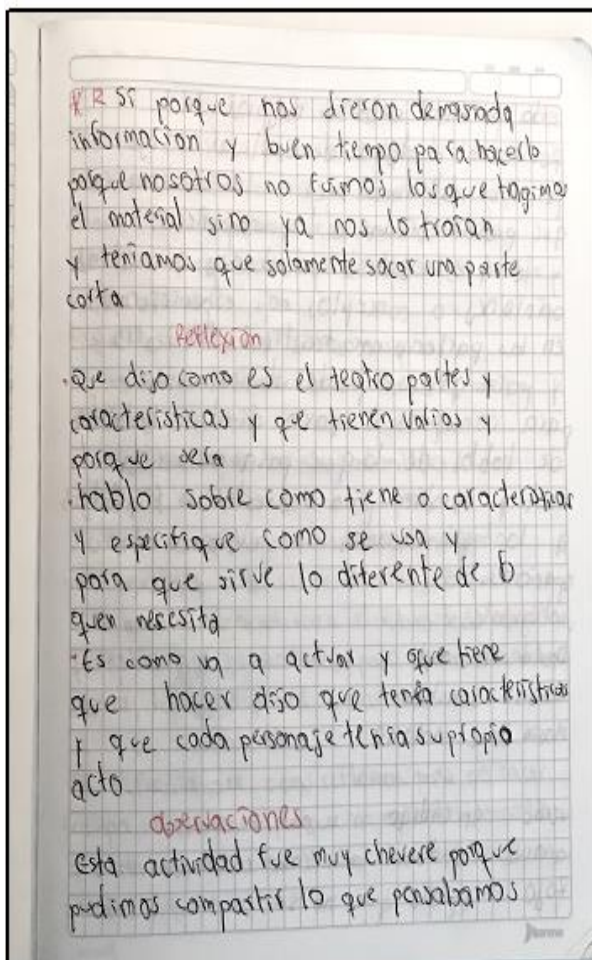 R Si porque nos dieron demasiada
informacion y buen tiempo para hacerlo
porque nosotros no fuimos los que tragimos
el material sino ya nos lo traian
y teniamos que solamente sacar una parte
corta
Reflexion
. Que dijo como es el teatro partes y
caracteristicas y que tienen varios y
porque sera
. hablo sobre como tiene o caracteristicas
y especifique como se usa y
para que sirve lo diferente de
quen nescesita
. Es como va a actuar y que tiene
que hacer dijo que tenia caracteristicas
y que cada personaje tenia su propio
acto
observaciones
Esta actividad fue muy chevere porque
pudimos compartir lo que pensabamos